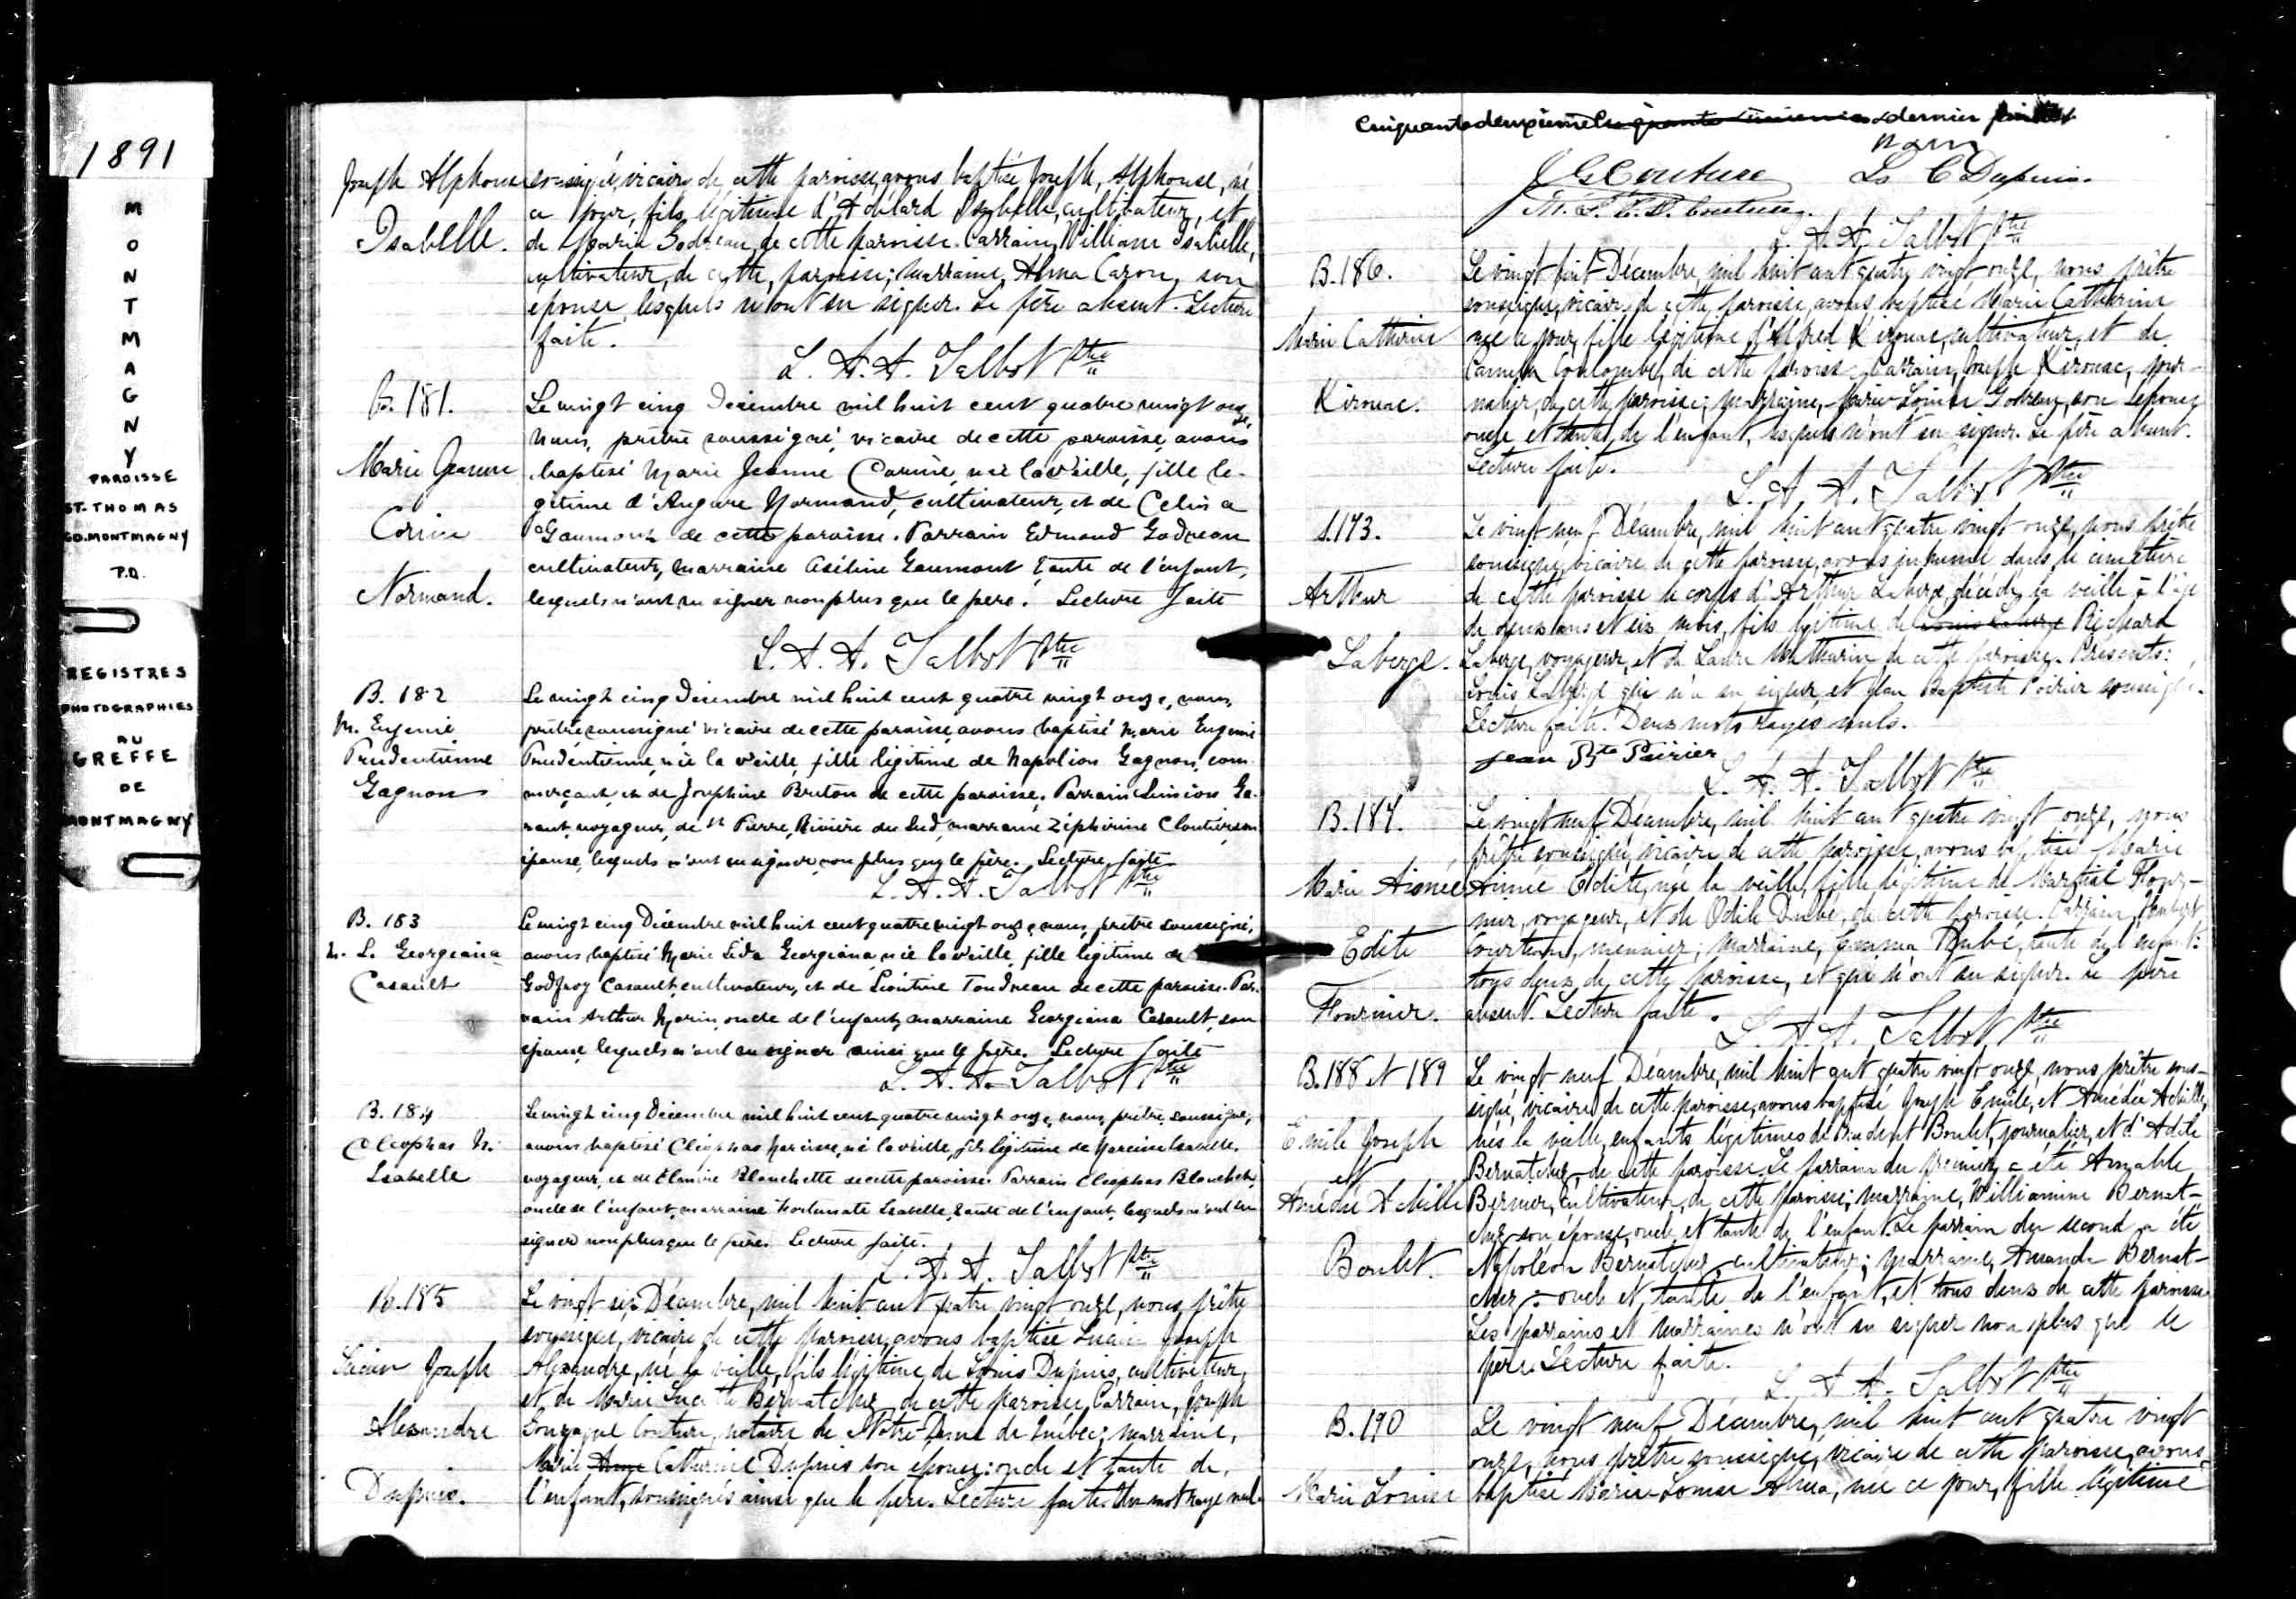 1891
MONTMAGNY
PAROISSE
ST-THOMAS
CO.MONTMAGNY
P.Q.
REGISTRES
PHOTOGRAPHIES
AU
GREFFE
DE
MONTMAGNY
Joseph Alphonse
Isabelle.
soussigné, vicaire de cette paroisse, avons baptisé Joseph, Alphonse, né
ce jour, fils légitime d'Adélard Isabelle, cultivateur, et
de Marie Godreau, de cette paroisse. Parrain, William Isabelle,
cultivateur, de cette paroisse; marraine, Alma Caron, son
épouse, lesquels n'ont su signer. Le père absent. Lecture
faite.
L. A. A. Talbot Ptre
B. 181.
Marie Jeanne
Corine
Normand.
Le vingt cinq Décembre mil huit cent quatre vingt onze,
Nous, prêtre soussigné vicaire de cette paroisse, avons
baptisé Marie Jeanne Corine, née la veille, fille lé-
gitime d'Normand, cultivateur, et de Celina
Gaumont de cette paroisse. Parrain Edmond Godreau
cultivateur, marraine Gaumont tante de l'enfant,
lesquels n'ont su signer non plus que le père. Lecture faite
L. A. A. Talbot Ptre
B. 182
M. Eugenie
Prudentienne
Gagnon
Le vingt cinq Décembre mil huit cent quatre vingt onze, nous,
prêtre soussigné vicaire de cette paroisse, avons baptisé Marie Eugenie
Prudentienne, née la veille, fille légitime de Napoléon Gagnon, com
merçant, et de Josephine Breton de cette paroisse. Parrain
voyageur, de St Pierre, Rivière du Sud, marraine Zéphirine Cloutier, son
épouse, lesquels n'ont su signer, non plus que le père. Lecture faite
L. A. A. Talbot Ptre
B. 183
M. L. Georgeana
Casault
Le vingt cinq Décembre mil huit cent quatre vingt onze, nous, prêtre soussigné,
avons baptisé Marie Léda Georgeana, née la veille, fille légitime de
Godfroy Casault, cultivateur, et de Léontine de cette paroisse. Par-
rain Arthur Morin, oncle de l'enfant, marraine Georgiana Casault, son
épouse, lesquels n'ont su signer ainsi que le père. Lecture faite
L. A. A. Talbot Ptre
B. 184
Cleophas N.
Isabelle
Le vingt cinq Décembre mil huit cent quatre vingt onze, nous, prêtre, soussigné,
avons baptisé Cléophas Narcisse, né la veille, fils légitime de Narcisse Isabelle,
voyageur, et de Blanchette de cette paroisse. Parrain Cleophas Blanchette,
oncle de l'enfant, marraine Fortunate Isabelle, tante de l'enfant, lesquels n'ont su
signer non plus que le père. Lecture faite.
L. A. A. Talbot Ptre
B. 185
Lucien Joseph
Alexandre
Dupuis.
Le vingt six Décembre, mil huit cent quatre vingt onze, nous, prêtre
soussigné, vicaire de cette paroisse, avons baptisé Lucien Joseph
Alexandre, né la veille, fils légitime de Louis Dupuis, cultivateur,
et de Marie Bernatchez, de cette paroisse. Parrain, Joseph
Gonzague Couture, notaire de Notre-Dame de Québec; marraine,
Marie Catherine Dupuis son épouse: oncle et tante de
l'enfant, soussignés ainsi que le père. Lecture faite. Un mot rayé nul.
Cinquante deuxième & dernier
J G Couture L. C. Dupuis.
Couture.
L. A. A. Talbot Ptre
B. 186.
Marie Catherine
Kirouac.
Le vingt huit Décembre, mil huit cent quatre vingt onze, nous prêtre
soussigné, vicaire de cette paroisse, avons baptisé Marie Catherine
née ce jour, fille légitime d'Alfred Kirouac, cultivateur, et de
Coulombe, de cette paroisse. Parrain, Joseph Kirouac, jour-
nalier, de cette paroisse; marraine, Marie Louise Godreau, son épouse,
oncle et tante de l'enfant, lesquels n'ont su signer. Le père absent.
Lecture faite.
L. A. A. Talbot Ptre
S. 173.
Arthur
Laberge.
Le vingt neuf Décembre, mil huit cent quatre vingt onze, nous prêtre
soussigné, vicaire de cette paroisse, avons inhumé dans le cimetière
de cette paroisse le corps d'Arthur Laberge, décédé, la veille à l'âge
de deux ans et six mois, fils légitime de Louis Laberge Richard
Laberge, voyageur, et de Laure Mathurin de cette paroisse. Présents:
Louis Laberge qui n'a su signer, et Jean Baptiste Poirier soussigné.
Lecture faite. Deux mots rayés nuls.
Jean Bte Poirier
L. A. A. Talbot Ptre
B. 187.
Marie Aimée
Edite
Fournier.
Le vingt neuf Décembre, mil huit cent quatre vingt onze, nous
prêtre soussigné, vicaire de cette paroisse, avons baptisé Marie
Aimée Edite, née la veille, fille légitime de Martial Four-
nier, voyageur, et de Odile Dubé, de cette paroisse. Parrain,
meunier; marraine, Emma Dubé, tante de l'enfant:
tous deux de cette paroisse, et qui n'ont su signer. Le père
absent. Lecture faite.
L. A. A. Talbot Ptre
B. 188 et 189
Emile Joseph
et
Amédée Achille
Boulet.
Le vingt neuf Décembre, mil huit cent quatre vingt onze, nous prêtre sous-
signé, vicaire de cette paroisse, avons baptisé Joseph Emile, et Amédée Achille,
nés la veille, enfants légitimes de Prudent Boulet, journalier, et d'Adèle
Bernatchez, de cette paroisse. Le parrain du premier a été Amable
Bernier, cultivateur, de cette paroisse; marraine, Williamine Bernat-
chez son épouse, oncle et tante de l'enfant. Le parrain du second a été
Napoléon Bernatchez, cultivateur; marraine, Amanda Bernat-
chez: oncle et tante de l'enfant, et tous deux de cette paroisse.
Les parrains et marraines n'ont su signer non plus que le
père. Lecture faite.
L. A. A. Talbot Ptre
B. 190
Marie Louise
Le vingt neuf Décembre, mil huit cent quatre vingt
onze, nous prêtre soussigné, vicaire de cette paroisse, avons
baptisé Marie Louise Alma, née ce jour, fille légitime